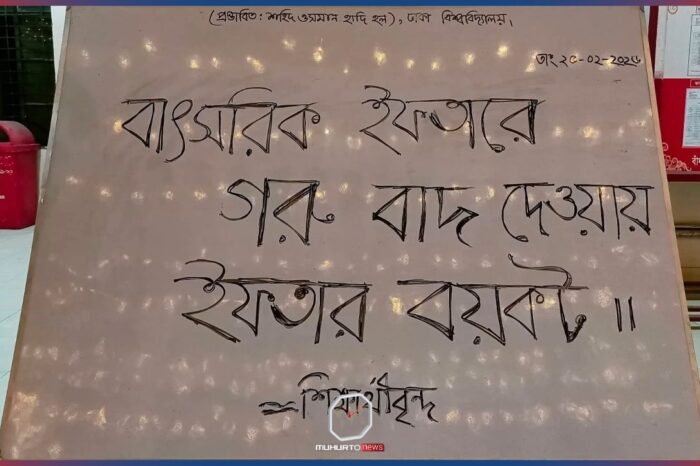 (প্রস্তাবিত: শহিদ ওসমান হাদি হল), ঢাকা বিশ্ববিদ্যালয়।
তাং ২৫-০২-২০২৬
বাৎসরিক ইফতারে
গরু বাদ দেওয়ায়
ইফতার বয়কট॥
শিক্ষার্থীবৃন্দ
MUHURTO news